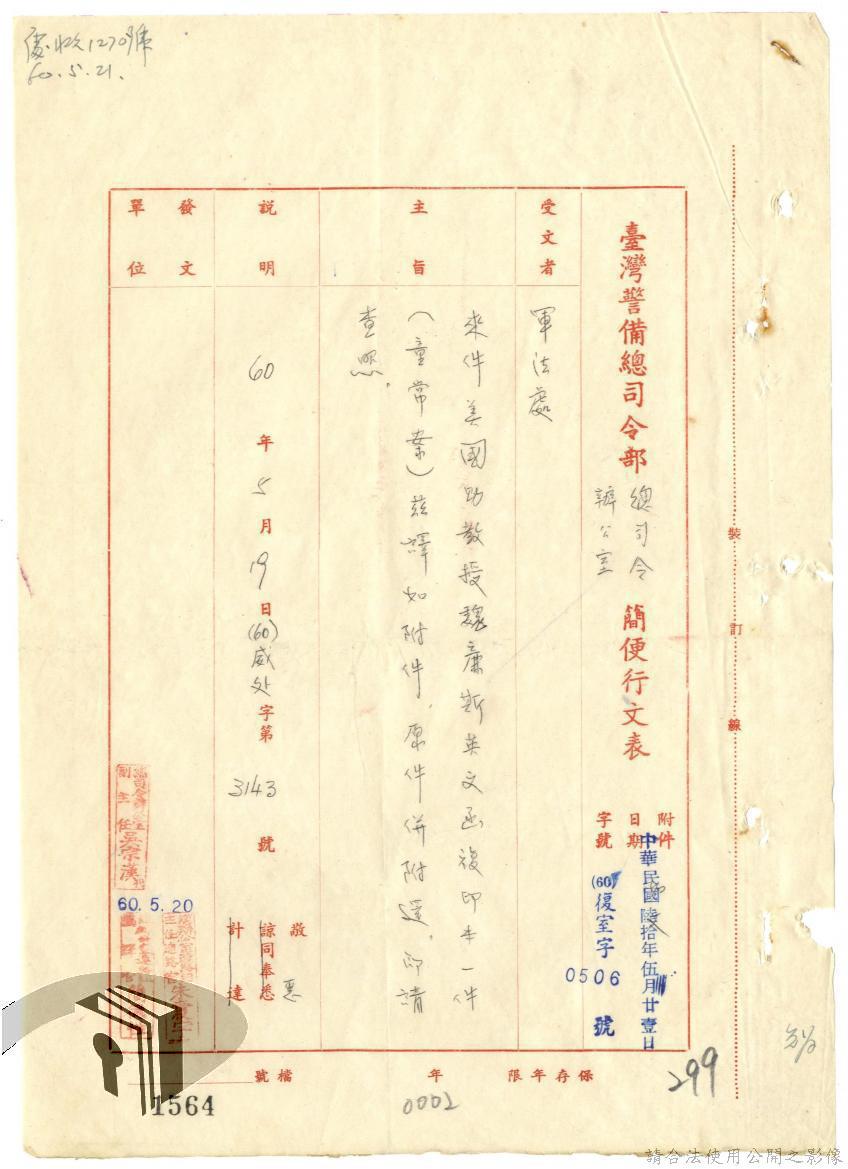 處收1270號
60.5.21.
臺灣警備總司令部 總司令辦公室 簡便行文表
附件
日期 中華民國陸拾年伍月廿壹日
字號 (60)復室字 0506 號
受文者 軍法處
主旨
來件美國助教授魏廉斯英文函複印本一件
(童常案)茲譯如附件,原件併附還,即請
查照.
說明 60年5月19日(60)威处字第3143號 敬悉
諒同奉悉
計達
發文單位
60.5.20
裝訂線
保存年限 年
檔號
0002
299
1564
請合法使用公開之影像